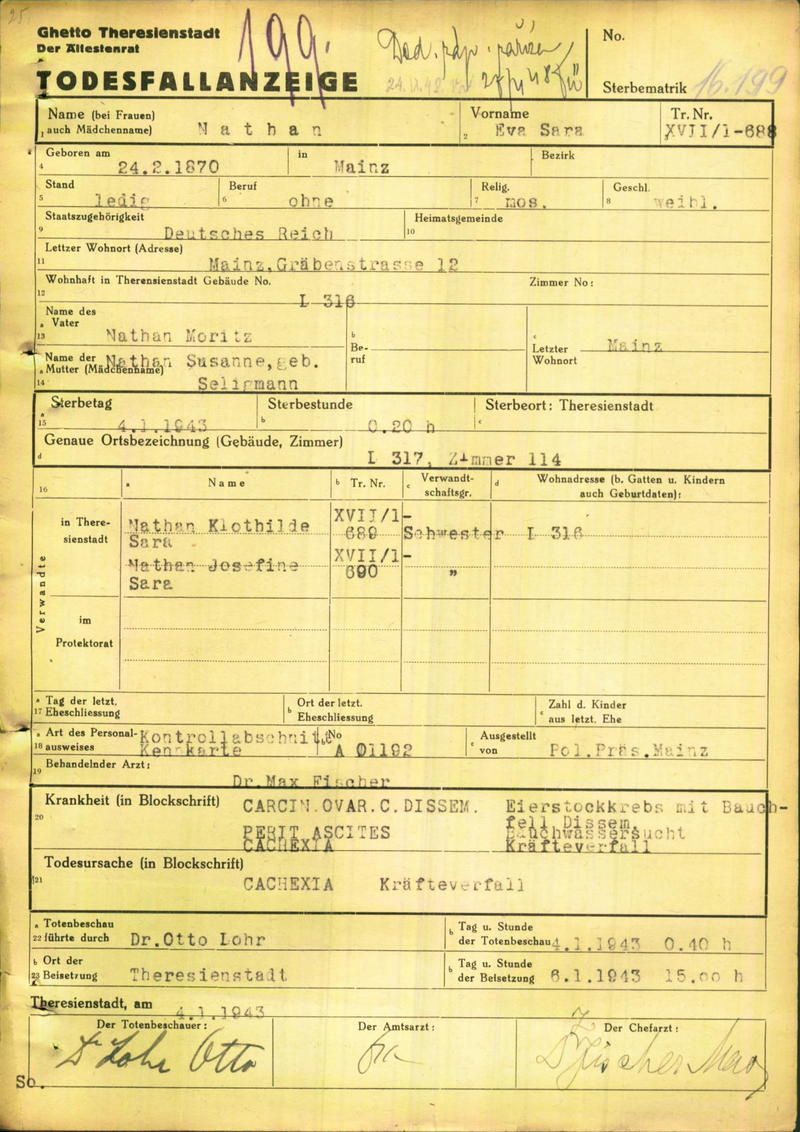 25
Ghetto Theresienstadt
Der Ältestenrat
TODESFALLANZEIGE
199.
No.
Sterbematrik 16.199
Name (bei Frauen) Nathan Vorname Eva Sara Tr. Nr.
1 auch Mädchenname) 2 XVII/1-688
Geboren am 24.2.1870 in Mainz Bezirk
4
Stand ledig Beruf ohne Relig. mos. Geschl. weibl.
5 6 7 8
Staatszugehörigkeit Deutsches Reich Heimatsgemeinde
9 10
Lettzer Wohnort (Adresse)
11 Mainz,Gräbenstrasse 12
Wohnhaft in Therensienstadt Gebäude No. Zimmer No:
12 L 316
Name des
a Vater
13 Nathan Moritz b Be-ruf c Letzter Wohnort Mainz
Name der Nathan Susanne,geb.
a Mutter (Mädchenname)
14 Seligmann
Sterbetag Sterbestunde Sterbeort: Theresienstadt
a 15 4.1.1943 b 0.20 h c
Genaue Ortsbezeichnung (Gebäude, Zimmer)
d L 317, Zimmer 114
16 a Name b Tr. Nr. c Verwandt-schaftsgr. d Wohnadresse (b. Gatten u. Kindern auch Geburtdaten):
Verwandte
in There-sienstadt
Nathan Klothilde XVII/1-
Sara 689 Schwester L 316
Nathan Josefine XVII/1-
Sara 690 „
im
Protektorat
a Tag der letzt. b Ort der letzt. c Zahl d. Kinder
17 Eheschliessung Eheschliessung aus letzt. Ehe
a Art des Personal- Kontrollabschnitt b No c Ausgestellt
18 ausweises Kennkarte A 01192 von Pol.Präs.Mainz
19 Behandelnder Arzt:
Dr.Max Fischer
Krankheit (in Blockschrift) CARCIN.OVAR.C.DISSEM. Eierstockkrebs mit Bauch-
20 fell Dissem
PERIT ASCITES Bauchwassersucht
CACHEXIA Kräfteverfall
Todesursache (in Blockschrift)
21 CACHEXIA Kräfteverfall
a Totenbeschau b Tag u. Stunde
22 führte durch Dr.Otto Lohr der Totenbeschau 4.1.1943 0.40 h
b Ort der b Tag u. Stunde
23 Beisetzung Theresienstadt der Beisetzung 6.1.1943 15.00 h
Theresienstadt, am 4.1.1943
Der Totenbeschauer: Der Amtsarzt: Der Chefarzt:
Dr Lohr Otto Dr Fischer Max
So.